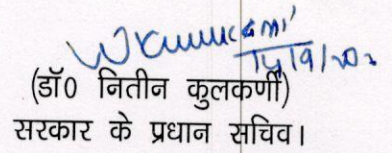 (डॉ0 नितीन कुलकर्णी)
सरकार के प्रधान सचिव।